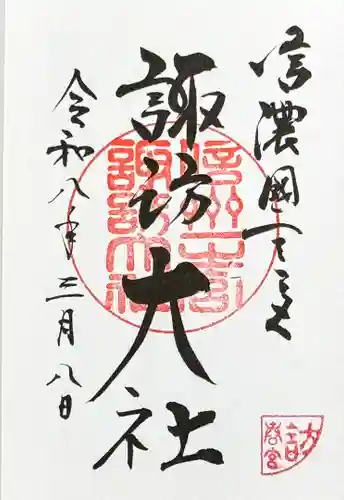 信濃國一之宮
諏訪大社
令和八年三月八日
信州一之宮
諏訪大社
春宮